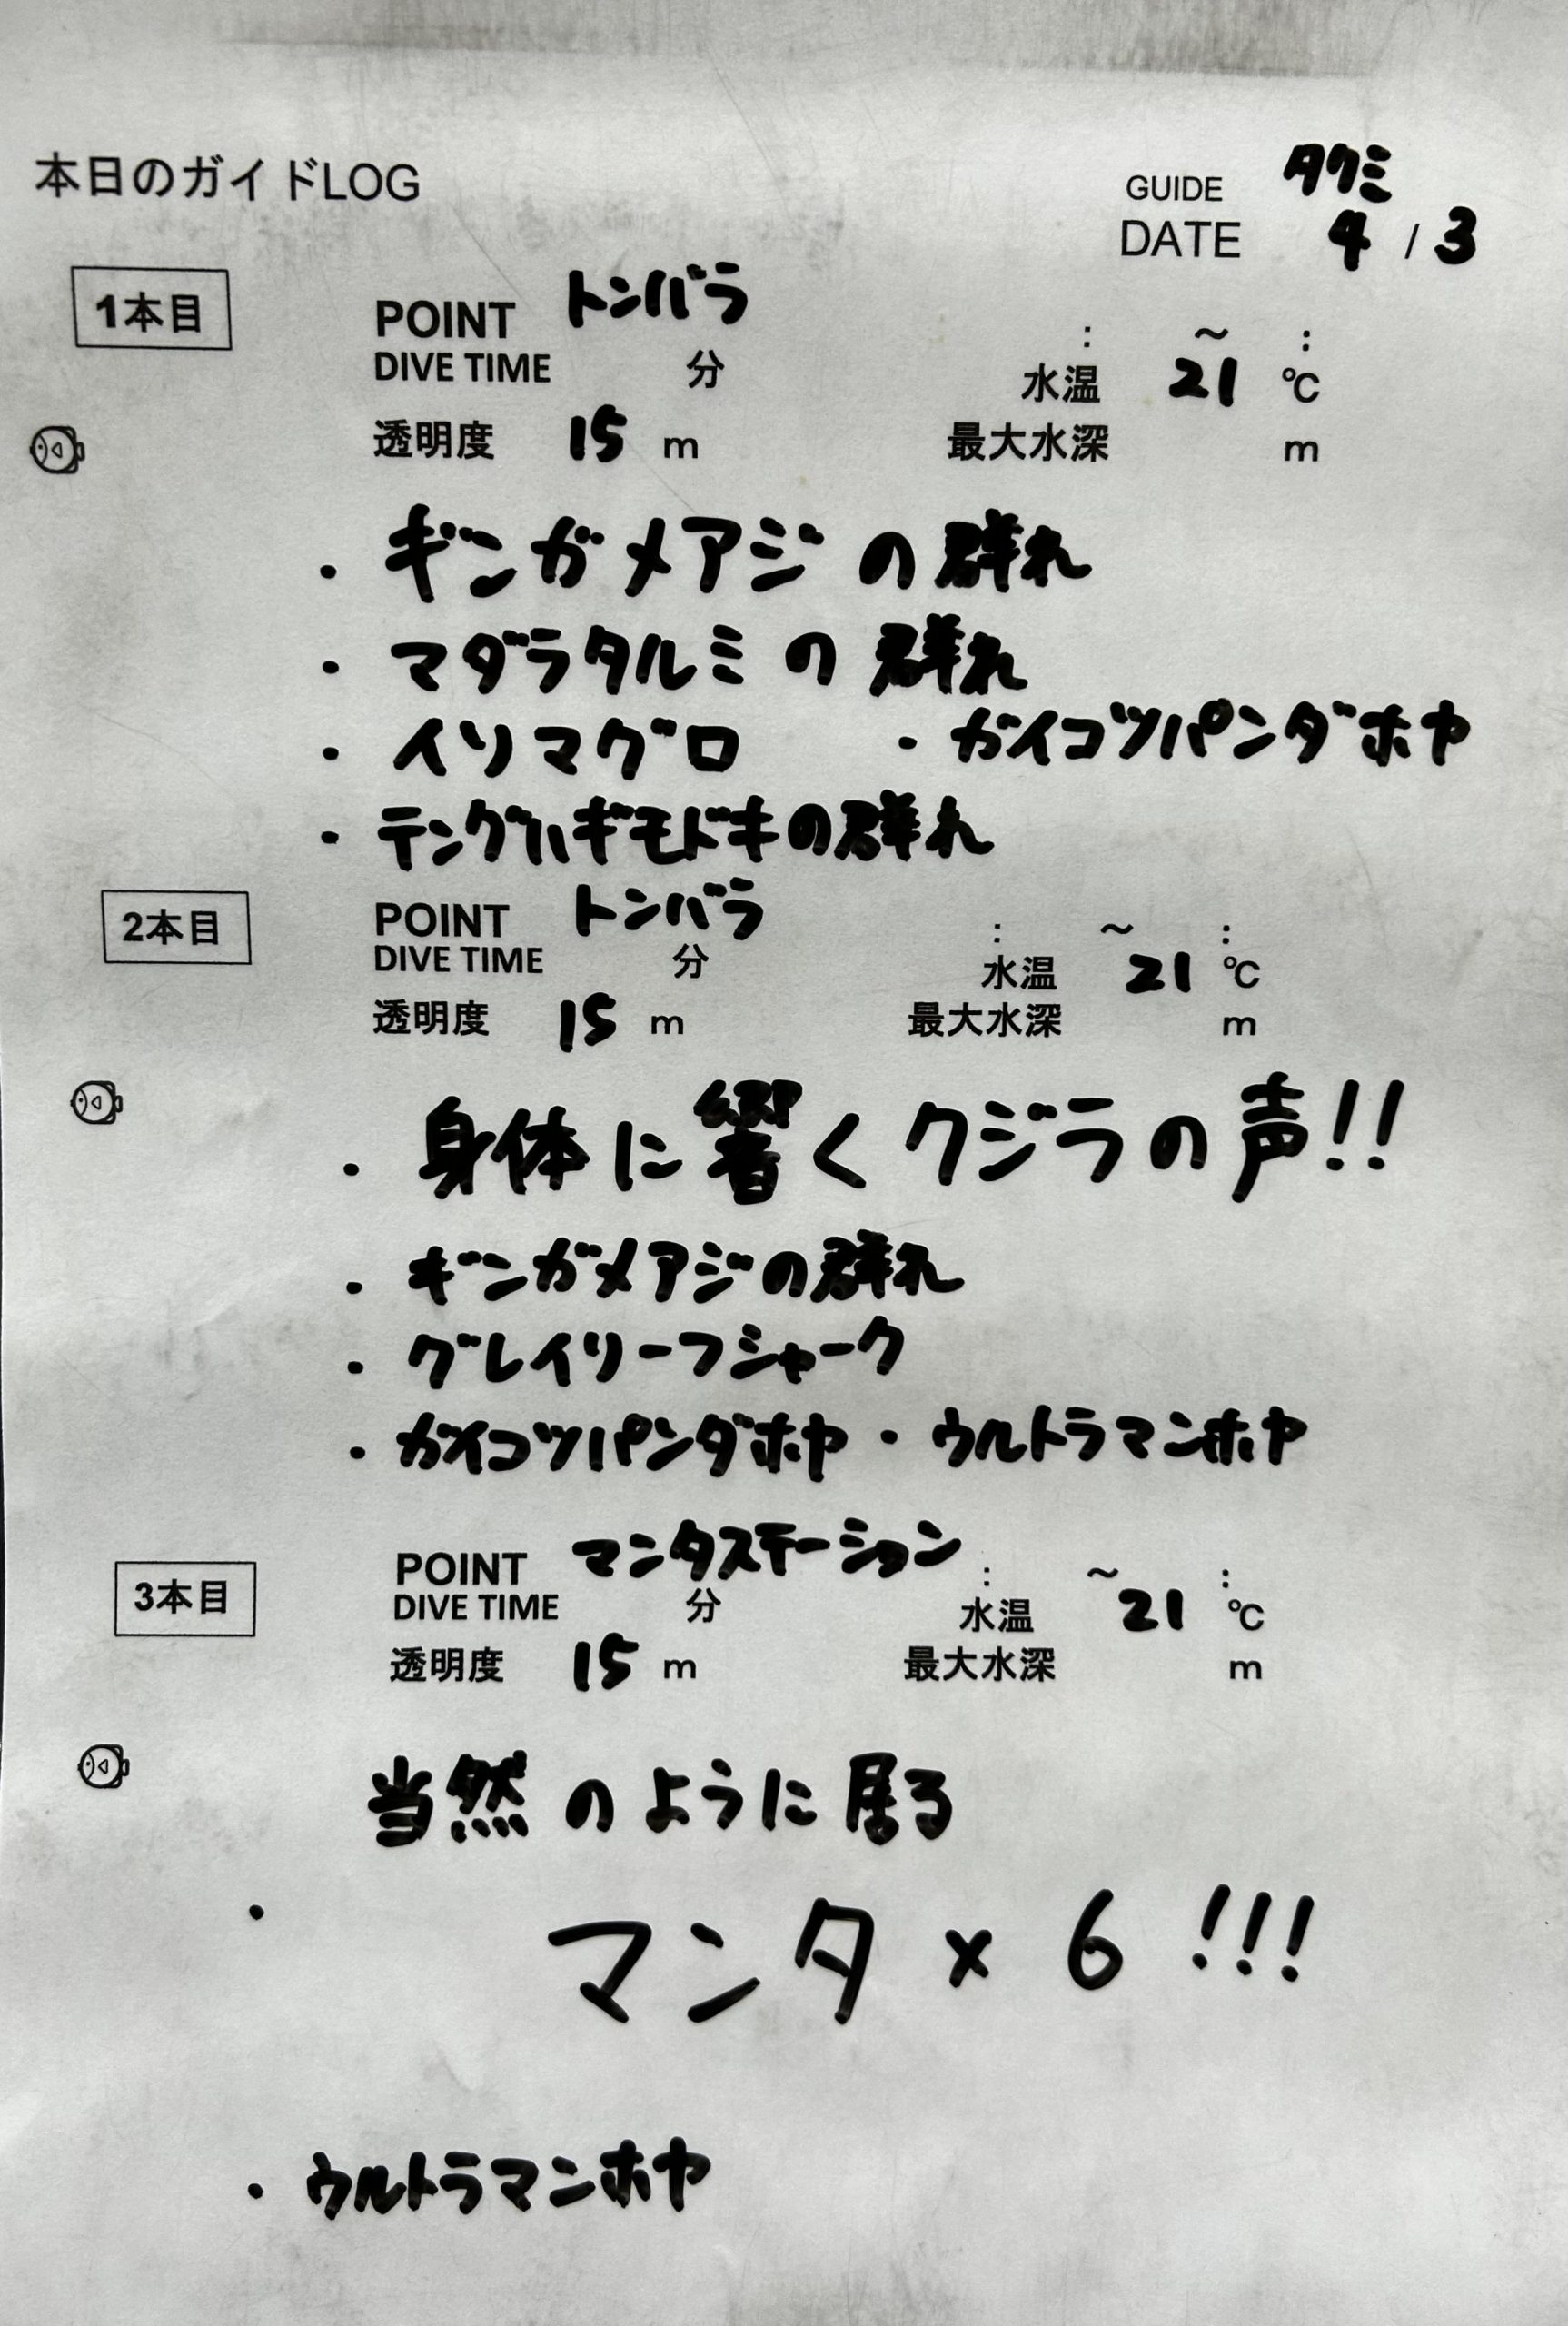 本日のガイドLOG
GUIDE タクミ
DATE 4 / 3
1本目
POINT トンバラ : 〜 :
DIVE TIME 分 水温 21 ℃
透明度 15 m 最大水深 m
・ギンガメアジの群れ
・マダラタルミの群れ
・イソマグロ ・ガイコツパンダホヤ
・テングハギモドキの群れ
2本目
POINT トンバラ : 〜 :
DIVE TIME 分 水温 21 ℃
透明度 15 m 最大水深 m
・身体に響くクジラの声!!
・ギンガメアジの群れ
・グレイリーフシャーク
・ガイコツパンダホヤ・ウルトラマンホヤ
3本目
POINT マンタステーション : 〜 :
DIVE TIME 分 水温 21 ℃
透明度 15 m 最大水深 m
当然のように居る
・マンタ×6!!!
・ウルトラマンホヤ